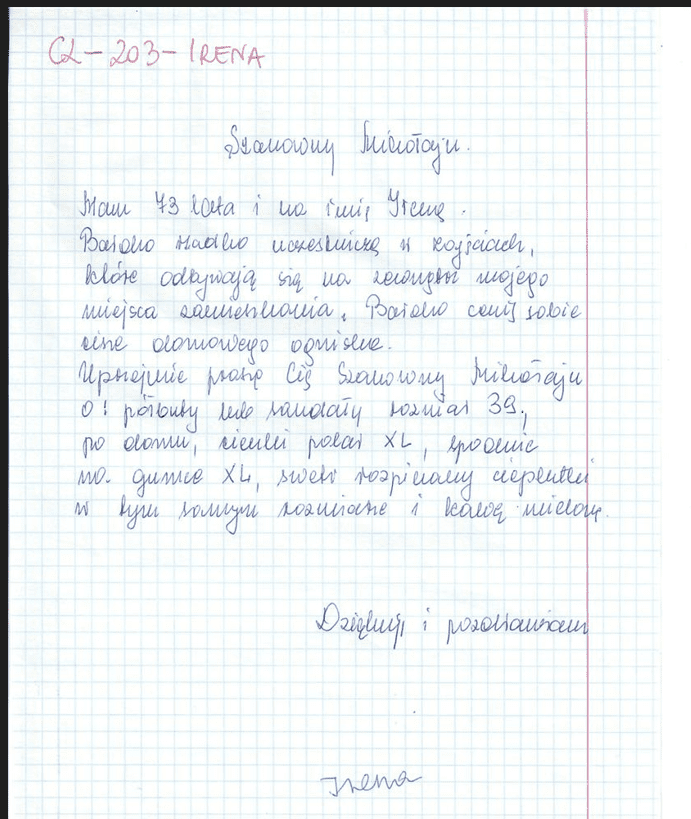 CL-203-IRENA
Szanowny Mikołaju.
Mam 73 lata i na imię Irena.
Bardzo rzadko uczestniczę w zajęciach,
które odbywają się na zewnątrz mojego
miejsca zamieszkania. Bardzo cenię sobie
ciszę domowego ogniska.
Uprzejmie proszę Cię Szanowny Mikołaju
o: półbuty lub sandały rozmiar 39,
po domu, cienki polar XL, spodnie
na gumce XL, swetr rozpinany cieplutki
w tym samym rozmiarze i kawę mieloną.
Dziękuję i pozdrawiam
Irena